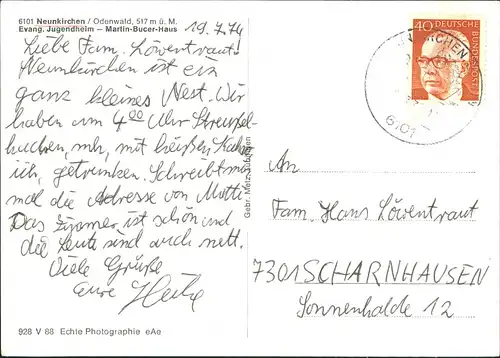 6101 Neunkirchen / Odenwald, 517 m ü. M.
Evang. Jugendheim — Martin-Bucer-Haus
19.7.74
Liebe Fam. Löwentraut!
Neunkirchen ist ein
ganz kleines Nest. Wir
haben um 4⁰⁰ Uhr Streusel-
kuchen, mh, mit heißen
getrunken. Schreibt mir
mal die Adresse von Mutti
Das Zimmer ist schön und
die Leute sind auch nett.
Viele Grüße
eure Heike
928 V 88 Echte Photographie eAe
Gebr. Metz, Tübingen
40 DEUTSCHE
BUNDESPOST
6101
An
Fam. Hans Löwentraut
7301 SCHARNHAUSEN
Sonnenhalde 12